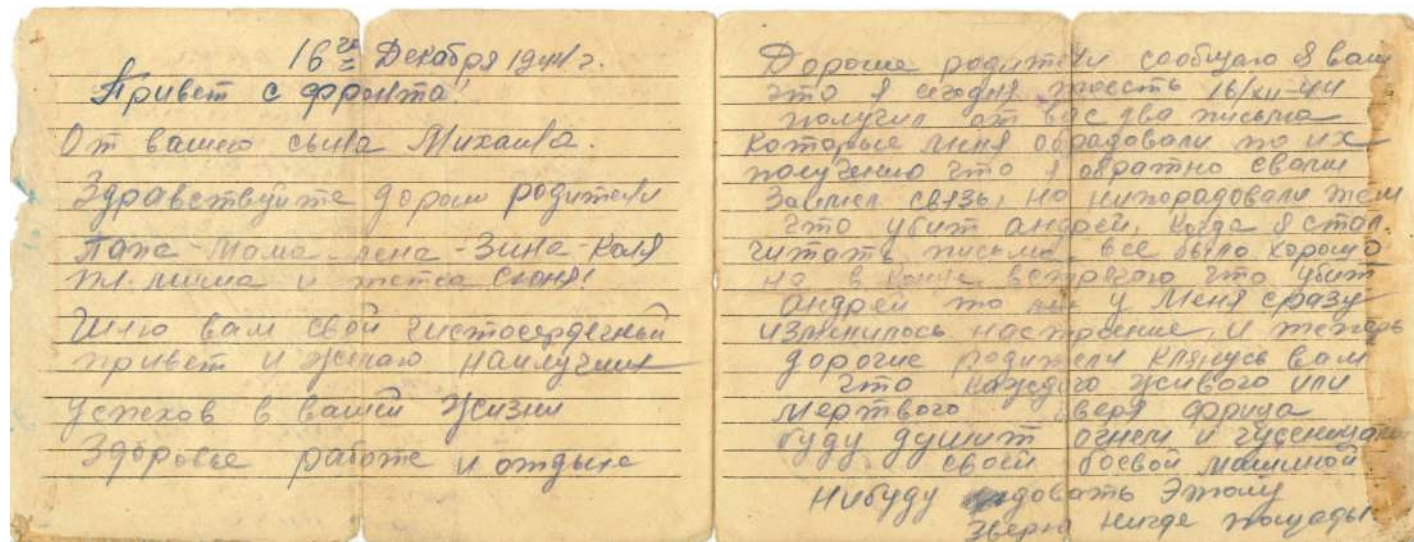 16го Декабря 1944 г.
Привет с фронта!
От вашего сына Михаила.
Здравствуйте дорогие родители
папа - мама - лена - Зина - Коля
и тетса Сюня!
Шлю вам свой чистосердечный
привет и желаю наилучших
успехов в вашей жизни
Здоровье работе и отдыхе
Дорогие родители сообщаю я вам
что я сегодня тоесть 16/XII-44
получил от вас два письма
которые меня обрадовали по их
получению что я обратно своими
связь, но нипорадовали тем
что убит андрей, когда я стал
читать письмо все было хорошо
но в конце встречаю что убит
андрей то у меня сразу
изменилось настроение, и теперь
дорогие родители клянусь вам
что каждого живого или
мертвого зверя фрица
буду душит огнем и гусеницами
своей боевой машиной
Нибуду этому
зверю нигде пощады